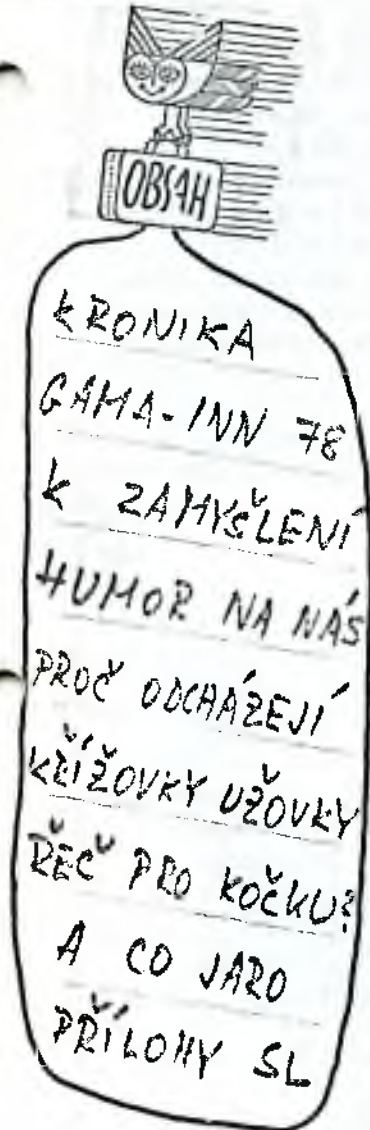 OBSAH
KRONIKA
GAMA-INN 78
K ZAMYŠLENÍ
HUMOR NA NÁS
PROČ ODCHÁZEJÍ
KŘÍŽOVKY UŽOVKY
ŘEČ PRO KOČKU?
A CO JARO
PŘÍLOHY SL